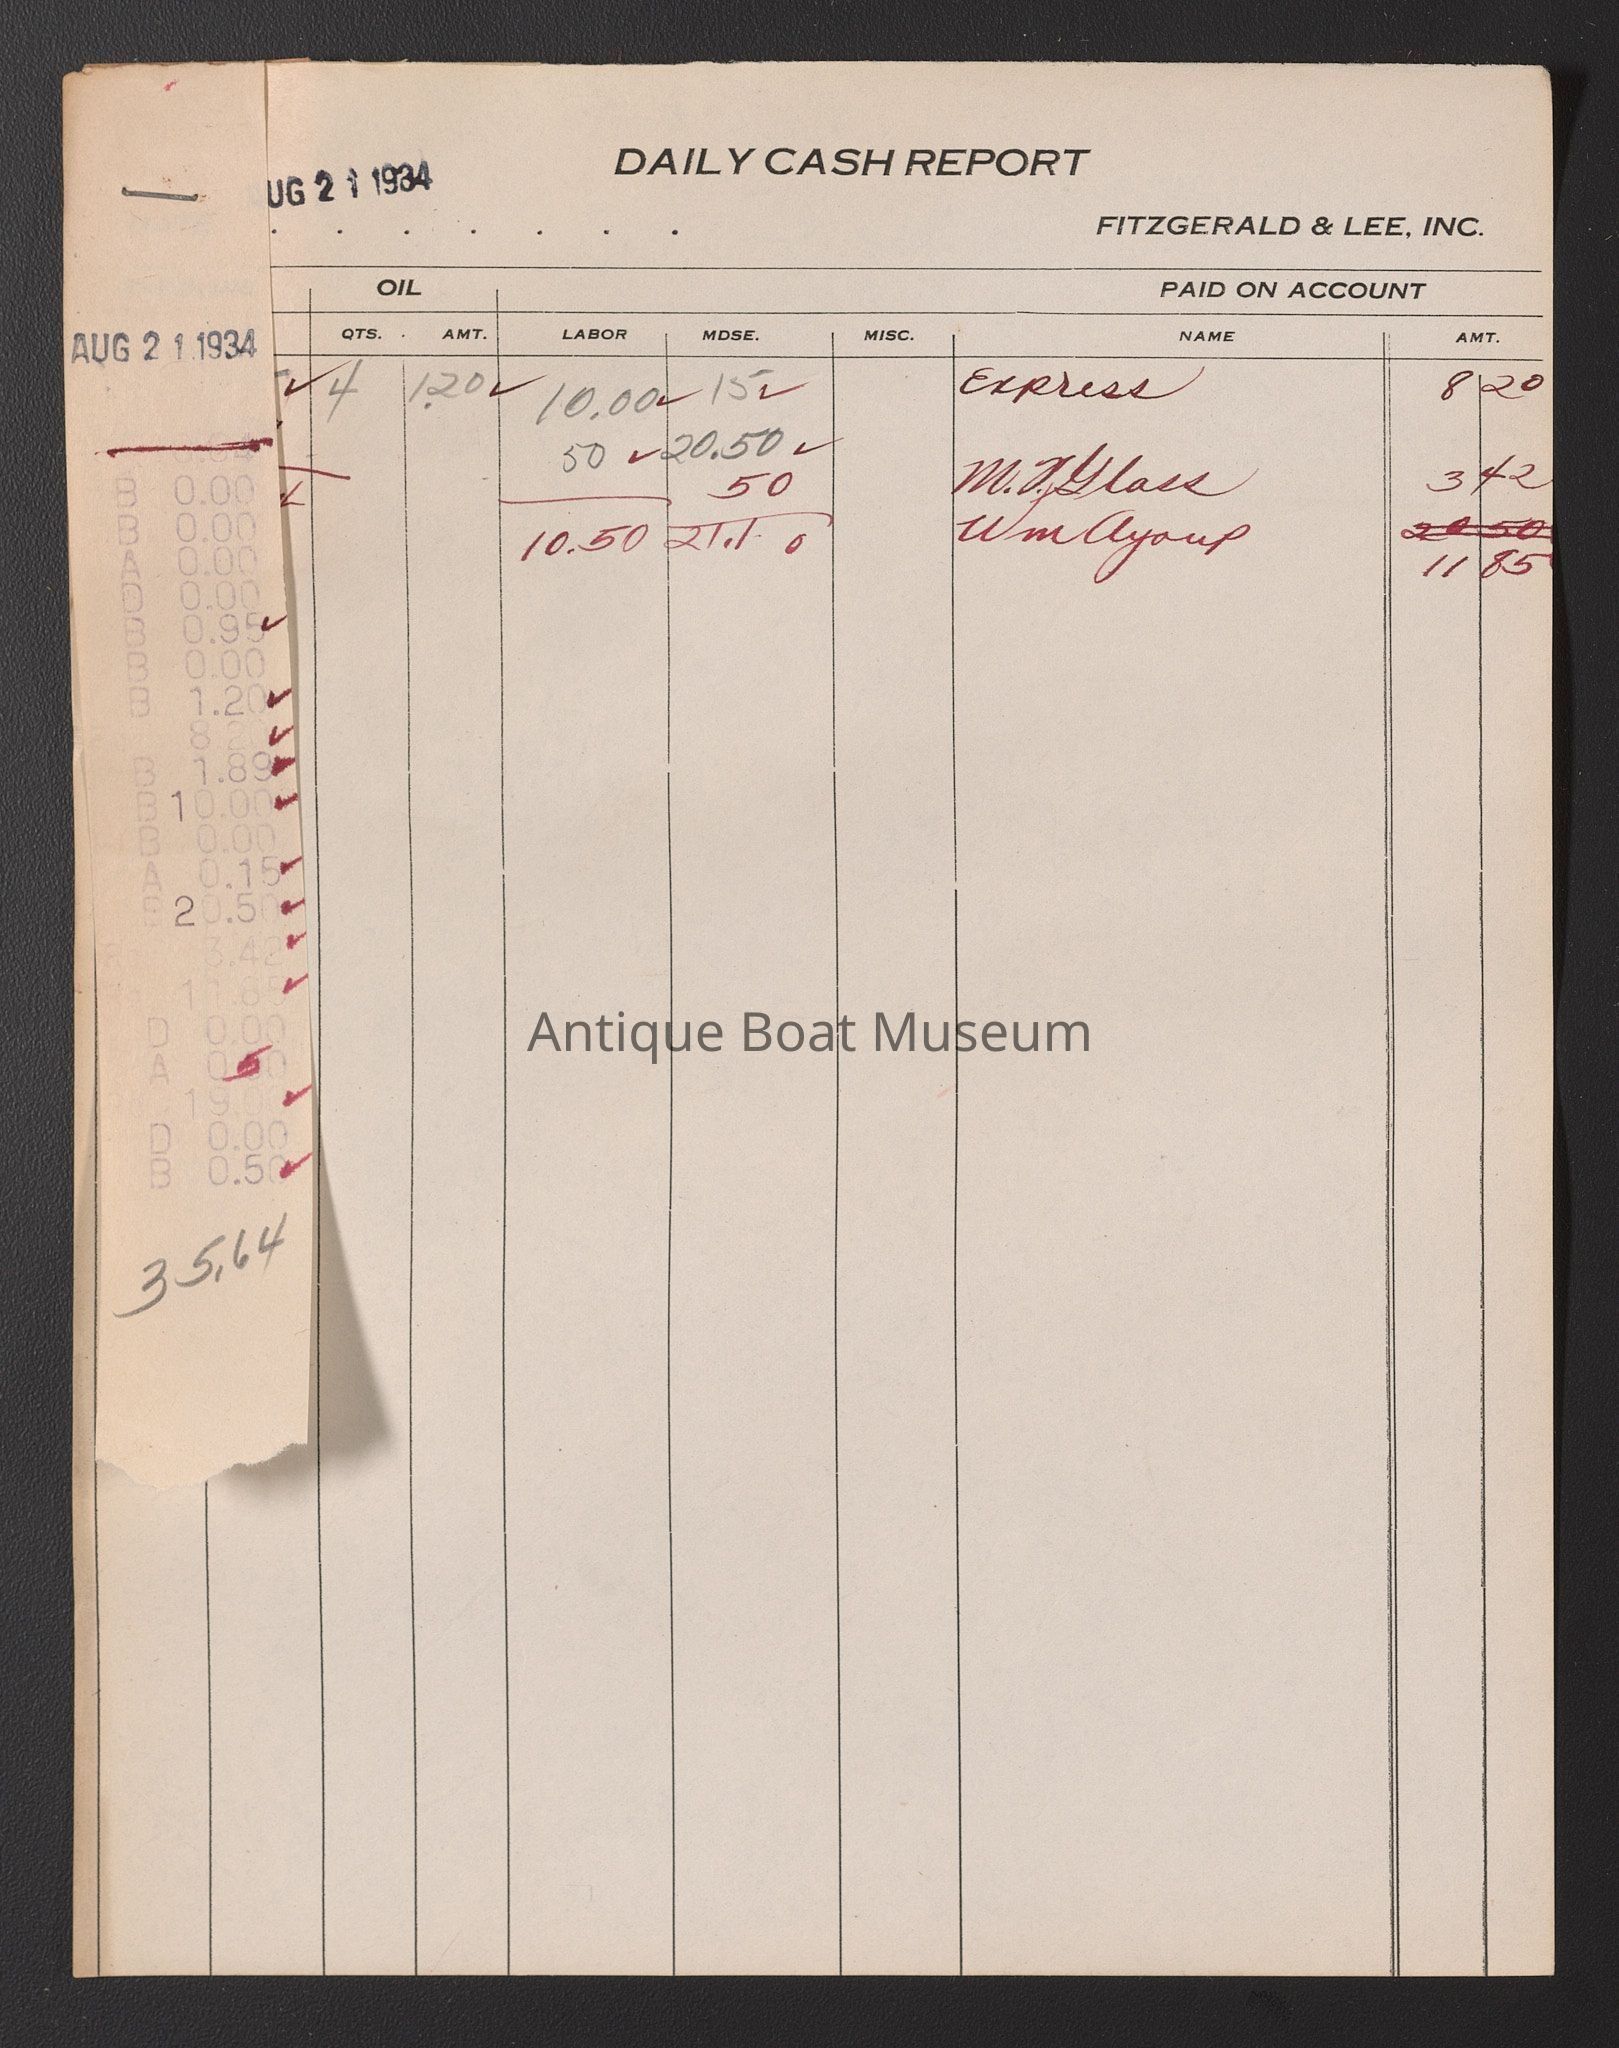 DAILY CASH REPORT
UG 2 1 1934
FITZGERALD & LEE, INC.
OIL PAID ON ACCOUNT
QTS. AMT. LABOR MDSE. MISC. NAME AMT.
AUG 2 1 1934
4 1.20 10.00 15 Express 8 20
50 20.50
50 M. J. Glass 3 42
10.50 21.1 0 Wm Ayoup 20 50
11 85
B 0.00
B 0.00
A 0.00
D 0.00
B 0.95
B 0.00
B 1.20
8.2
B 1.89
B 10.00
B 0.00
A 0.15
20.50
3.42
11.85
D 0.00
A 0.50
D 0.00
B 0.50
35.64
Antique Boat Museum